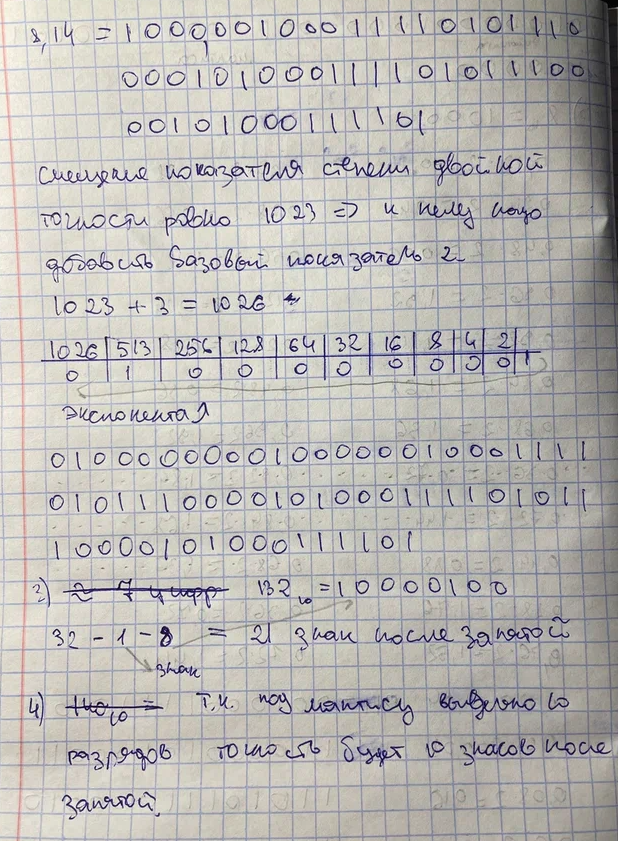 8,14 = 1000,001000111101011 10
000101000111101011100
00101000111101
смещение показателя степени двойной
точности равно 1023 => к нему надо
добавить базовый показатель 2.
1023 + 3 = 1026
1026 | 513 | 256 | 128 | 64 | 32 | 16 | 8 | 4 | 2 |
0 | 1 | 0 | 0 | 0 | 0 | 0 | 0 | 0 | 0 | 1
Экспонента
010000000001000000100011 11
0101110000101000111101011
100001010001111 01
3) 2 7 цифр 132₁₀ = 10000100
32 - 1 - 8 = 21 знак после запятой
знак
4) Т.к. под мантису выделено 10
разрядов точность будет 10 знаков после
запятой.